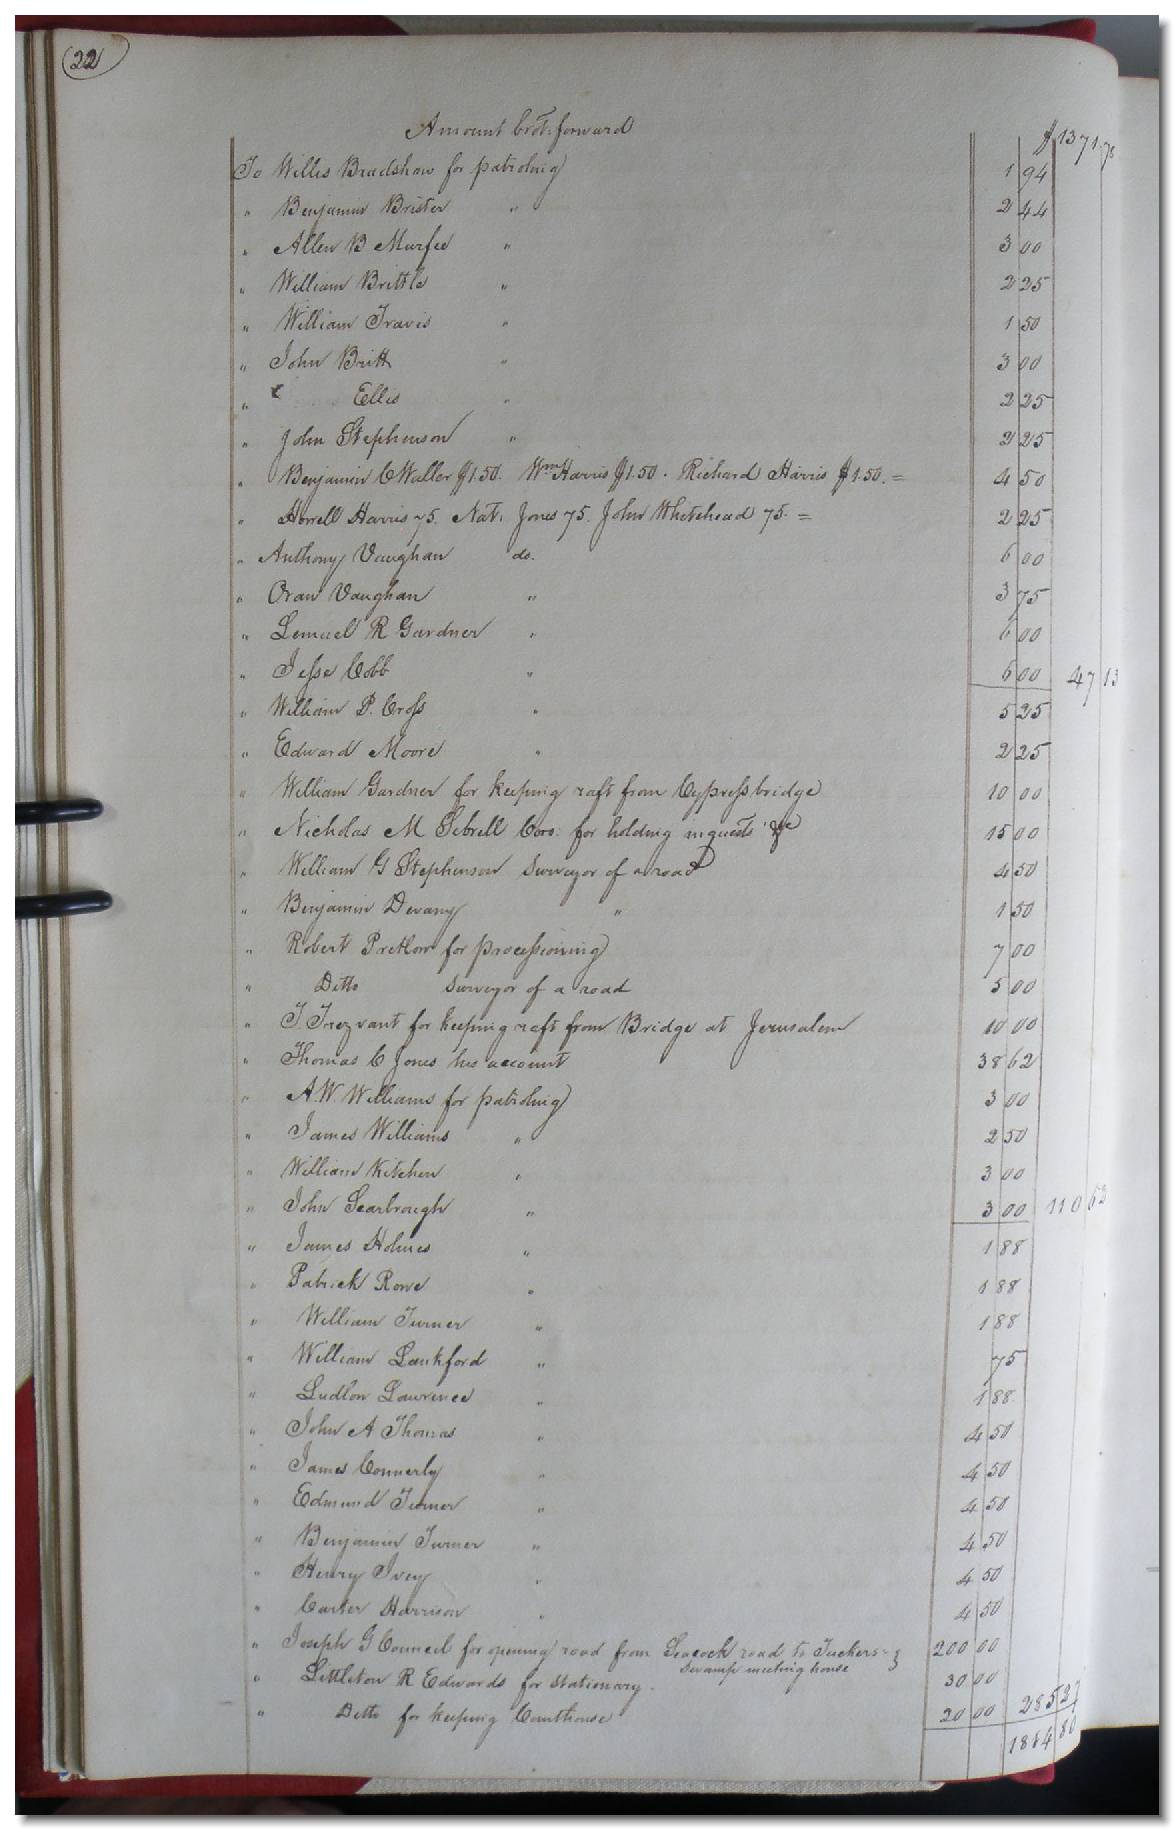 22
Amount brot. forward $1371.78
To Willis Bradshaw for patroling 1 94
" Benjamin Brister " 2 44
" Allen B Murfee " 3 00
" William Brittle " 2 25
" William Travis " 1 50
" John Britt " 3 00
" Ellis " 2 25
" John Stephenson " 2 25
" Benjamin C Waller $1.50. Wm Harris $1.50. Richard Harris $1.50. = 4 50
" Howell Harris 75. Nat. Jones 75. John Whitehead 75. = 2 25
" Anthony Vaughan do. 6 00
" Oran Vaughan " 3 75
" Lemuel R Gardner " 6 00
" Jesse Cobb " 6 00 47 13
" William P. Cross " 5 25
" Edward Moore " 2 25
" William Gardner for keeping raft from Cypress bridge 10 00
" Nicholas M Sebrell Coro: for holding inquests &c 15 00
" William G Stephenson Surveyor of a road 4 50
" Benjamin Devany " 1 50
" Robert Pretlow for processioning 7 00
" Ditto Surveyor of a road 5 00
" T Trezvant for keeping raft from Bridge at Jerusalem 10 00
" Thomas C Jones his account 38 62
" A.W. Williams for patroling 3 00
" James Williams " 2 50
" William Kitchen " 3 00
" John Scarbrough " 3 00 110 62
" James Holmes " 1 88
" Patrick Rowe " 1 88
" William Turner " 1 88
" William Lankford " 75
" Ludlow Lawrence " 1 88
" John A Thomas " 4 50
" James Connerly " 4 50
" Edmund Turner " 4 50
" Benjamin Turner " 4 50
" Henry Ivey " 4 50
" Carter Harrison " 4 50
" Joseph G Council for opening road from Seacock road to Tuckers- } 200 00
Swamp meeting house
" Littleton R Edwards for stationary. 30 00
" Ditto for keeping Courthouse 20 00 285 27
1814 80